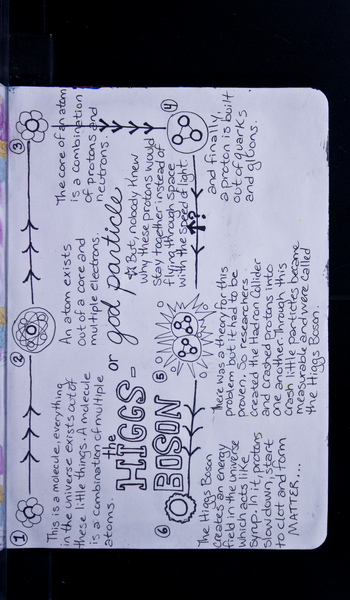 1
This is a molecule. everything
in the universe exists out of
these little things. A molecule
is a combination of multiple
atoms.
2
An atom exists
out of a core and
multiple electrons.
3
The core of an atom
is a combination
of protons and
neutrons.
the
HIGGS-
BOSON
or
god particle
☆ But, nobody knew
why these protons would
stay together instead of
flying through space
with the speed of light
4
and finally,
a proton is built
out of quarks
and gluons.
?
5
There was a theory for this
problem but it had to be
proven. So researchers
created the Hadron Collider
and crashed protons into
one another. Through this
crash little particles became
measurable and were called
the Higgs Boson.
6
The Higgs Boson
creates an energy
field in the universe
which acts like
syrup. in it, protons
slow down, start
to clot and form
MATTER...